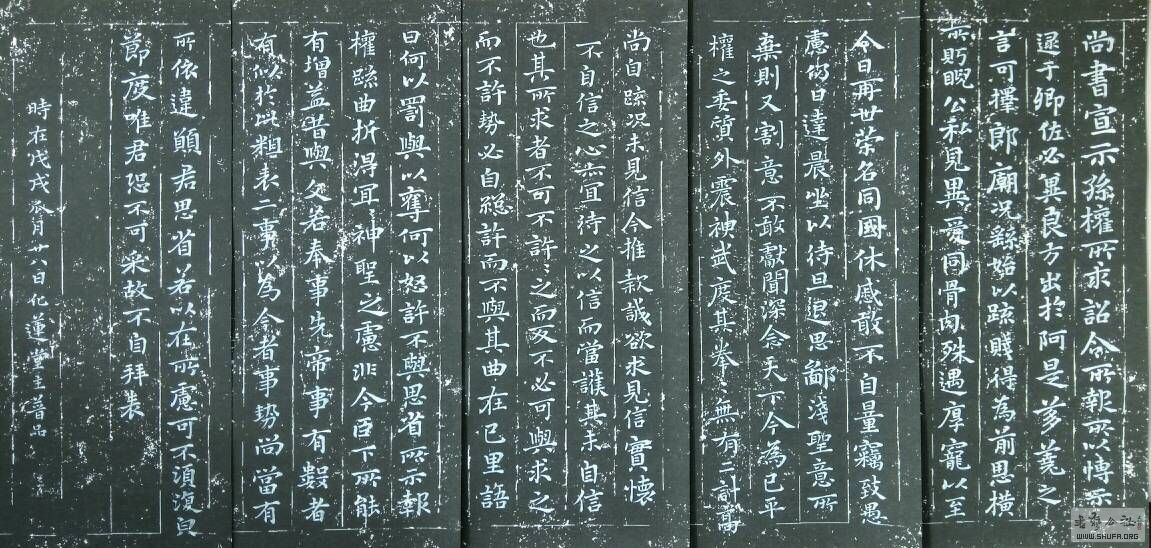 尚書宣示孫權所求詔令所報所以博示
逮于卿佐必冀良方出於阿是芻蕘之
言可擇郎廟況繇始以疏賤得為前思橫
所眄睨公私見異愛同骨肉殊遇厚寵以至
今日再世榮名同國休慼敢不自量竊致愚
慮仍日達晨坐以待旦退思鄙淺聖意所
棄則又割意不敢獻聞深念天下今為已平
權之委質外震神武度其拳〻無有二計高
尚自疏況未見信今推款誠欲求見信實懷
不自信之心亦宜待之以信而當護其未自信
也其所求者不可不許〻之而反不必可與求之
而不許勢必自絕許而不與其曲在己里語
曰何以罰與以奪何以怒許不與思省所示報
權疏曲折得宜〻神聖之慮非今臣下所能
有增益昔與文若奉事先帝事有數者
有似於此粗表二事以為今者事勢尚當有
所依違願君思省若以在所慮可不須復皃
節度唯君恐不可采故不自拜表
時在戊戌 月廿八日化蓮堂主
WWW.SHUFA.ORG